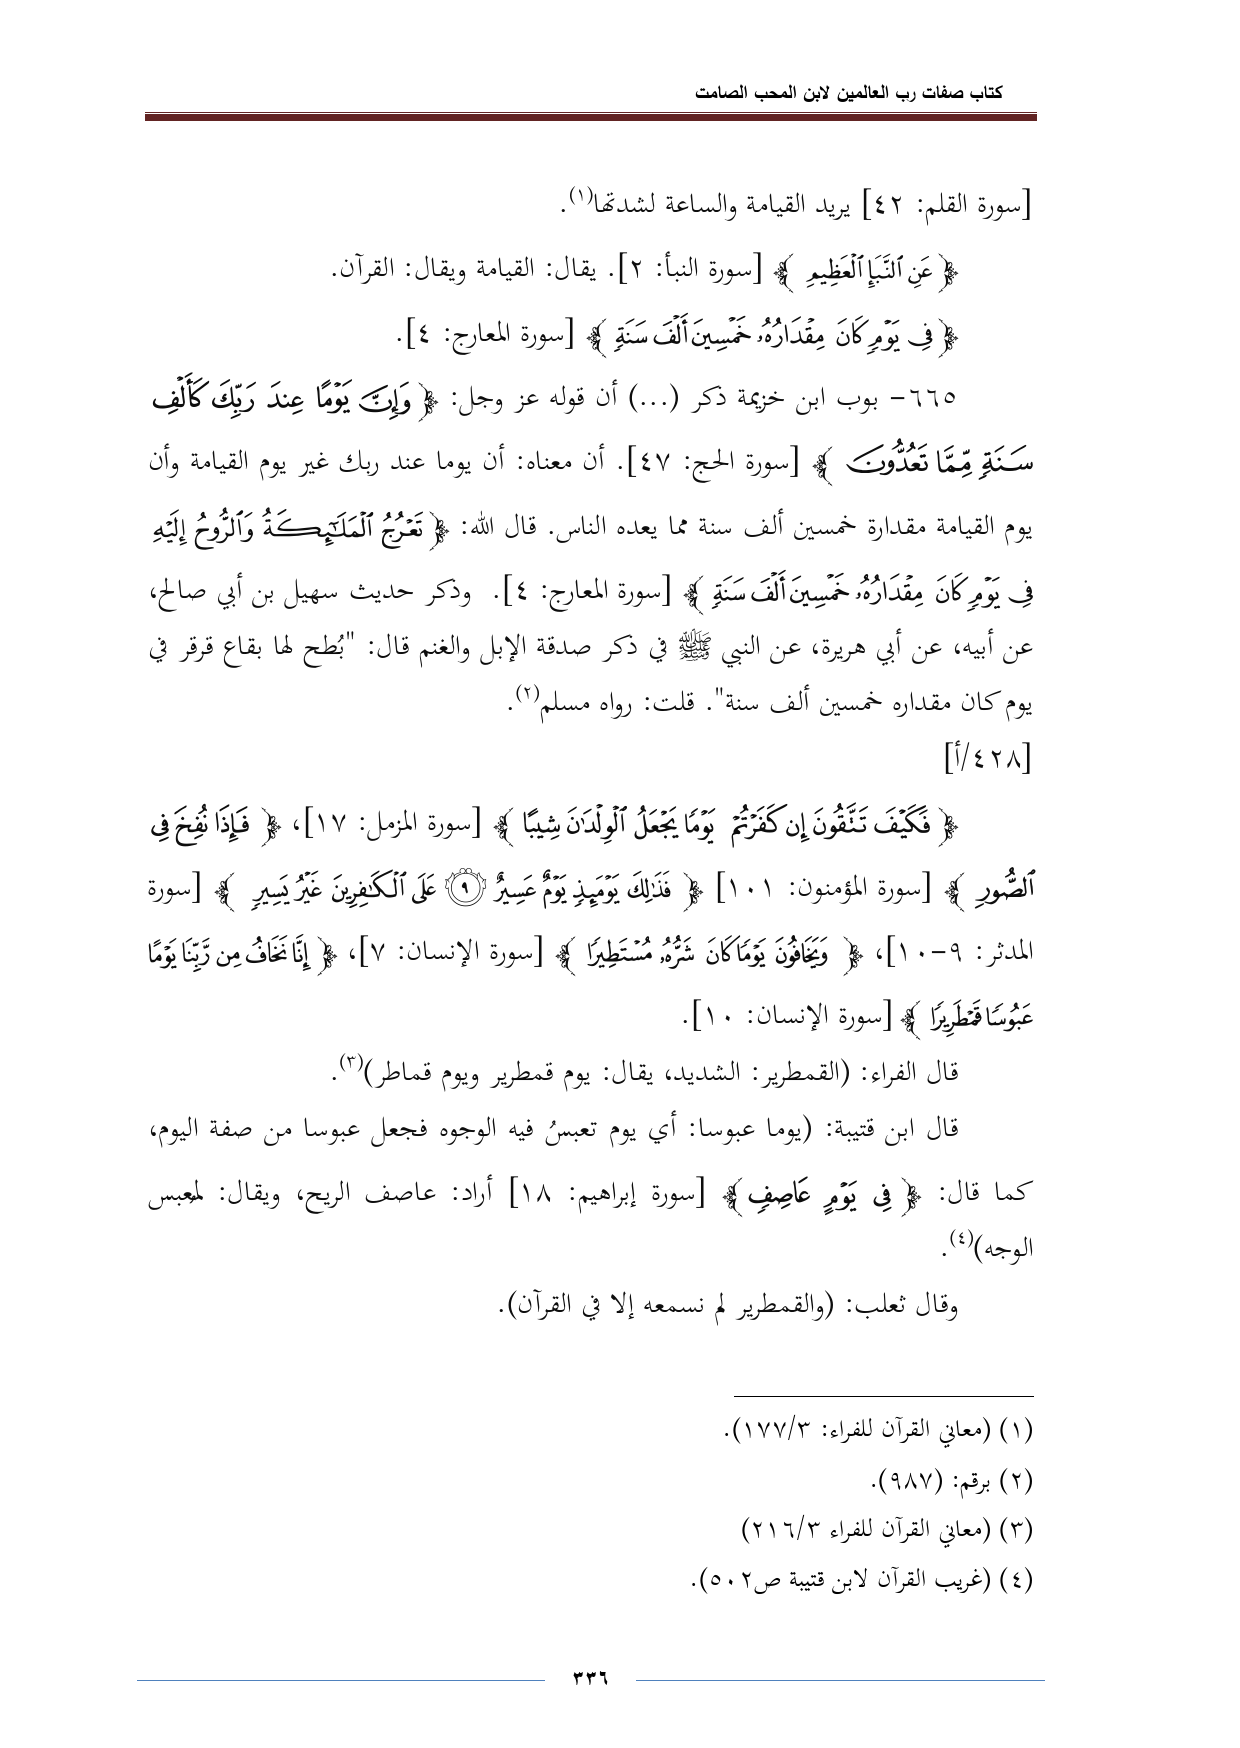 كتاب صفات رب العالمين لابن المحب الصامت
[سورة القلم: ٤٢] يريد القيامة والساعة لشدتها(١).
﴿ عَنِ ٱلنَّبَإِ ٱلْعَظِيمِ ﴾ [سورة النبأ: ٢]. يقال: القيامة ويقال: القرآن.
﴿ فِى يَوْمٍ كَانَ مِقْدَارُهُۥ خَمْسِينَ أَلْفَ سَنَةٍ ﴾ [سورة المعارج: ٤].
٦٦٥- بوب ابن خزيمة ذكر (...) أن قوله عز وجل: ﴿ وَإِنَّ يَوْمًا عِندَ رَبِّكَ كَأَلْفِ
سَنَةٍ مِّمَّا تَعُدُّونَ ﴾ [سورة الحج: ٤٧]. أن معناه: أن يوما عند ربك غير يوم القيامة وأن
يوم القيامة مقدارة خمسين ألف سنة مما يعده الناس. قال الله: ﴿ تَعْرُجُ ٱلْمَلَٰٓئِكَةُ وَٱلرُّوحُ إِلَيْهِ
فِى يَوْمٍ كَانَ مِقْدَارُهُۥ خَمْسِينَ أَلْفَ سَنَةٍ ﴾ [سورة المعارج: ٤]. وذكر حديث سهيل بن أبي صالح،
عن أبيه، عن أبي هريرة، عن النبي ﷺ في ذكر صدقة الإبل والغنم قال: "بُطح لها بقاع قرقر في
يوم كان مقداره خمسين ألف سنة". قلت: رواه مسلم(٢).
[٤٢٨/أ]
﴿ فَكَيْفَ تَتَّقُونَ إِن كَفَرْتُمْ يَوْمًا يَجْعَلُ ٱلْوِلْدَٰنَ شِيبًا ﴾ [سورة المزمل: ١٧]، ﴿ فَإِذَا نُفِخَ فِى
ٱلصُّورِ ﴾ [سورة المؤمنون: ١٠١] ﴿ فَذَٰلِكَ يَوْمَئِذٍ يَوْمٌ عَسِيرٌ ۝٩ عَلَى ٱلْكَٰفِرِينَ غَيْرُ يَسِيرٍ ﴾ [سورة
المدثر: ٩-١٠]، ﴿ وَيَخَافُونَ يَوْمًا كَانَ شَرُّهُۥ مُسْتَطِيرًا ﴾ [سورة الإنسان: ٧]، ﴿ إِنَّا نَخَافُ مِن رَّبِّنَا يَوْمًا
عَبُوسًا قَمْطَرِيرًا ﴾ [سورة الإنسان: ١٠].
قال الفراء: (القمطرير: الشديد، يقال: يوم قمطرير ويوم قماطر)(٣).
قال ابن قتيبة: (يوما عبوسا: أي يوم تعبسُ فيه الوجوه فجعل عبوسا من صفة اليوم،
كما قال: ﴿ فِى يَوْمٍ عَاصِفٍ ﴾ [سورة إبراهيم: ١٨] أراد: عاصف الريح، ويقال: لمعبس
الوجه)(٤).
وقال ثعلب: (والقمطرير لم نسمعه إلا في القرآن).
(١) (معاني القرآن للفراء: ١٧٧/٣).
(٢) برقم: (٩٨٧).
(٣) (معاني القرآن للفراء ٢١٦/٣)
(٤) (غريب القرآن لابن قتيبة ص٥٠٢).
٣٣٦